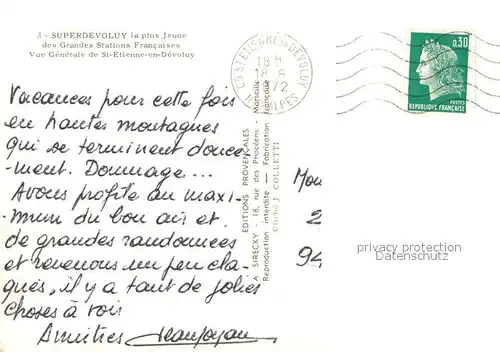 3 - SUPERDEVOLUY la plus Jeune
des Grandes Stations Françaises
Vue Générale de St-Etienne-en-Dévoluy
Vacances pour cette fois
en hautes montagnes
qui se terminent douce-
ment. Dommage...
Avons profité au maxi-
mum du bon air et
de grandes randonnées
et revenons un peu cla-
qués, il y a tant de jolies
choses à voir
Amitiés
EDITIONS PROVENÇALES
A SIRECKY - 18, rue des Phocéens - Marseille
Reproduction interdite — Fabrication Française
Cliché J. COLLETTI
05 ST ETIENNE EN DEVOLUY
18 H
18 - 8
1972
HTES ALPES
0,30
POSTES
REPUBLIQUE FRANÇAISE
Mon
2
94
privacy protection
Datenschutz